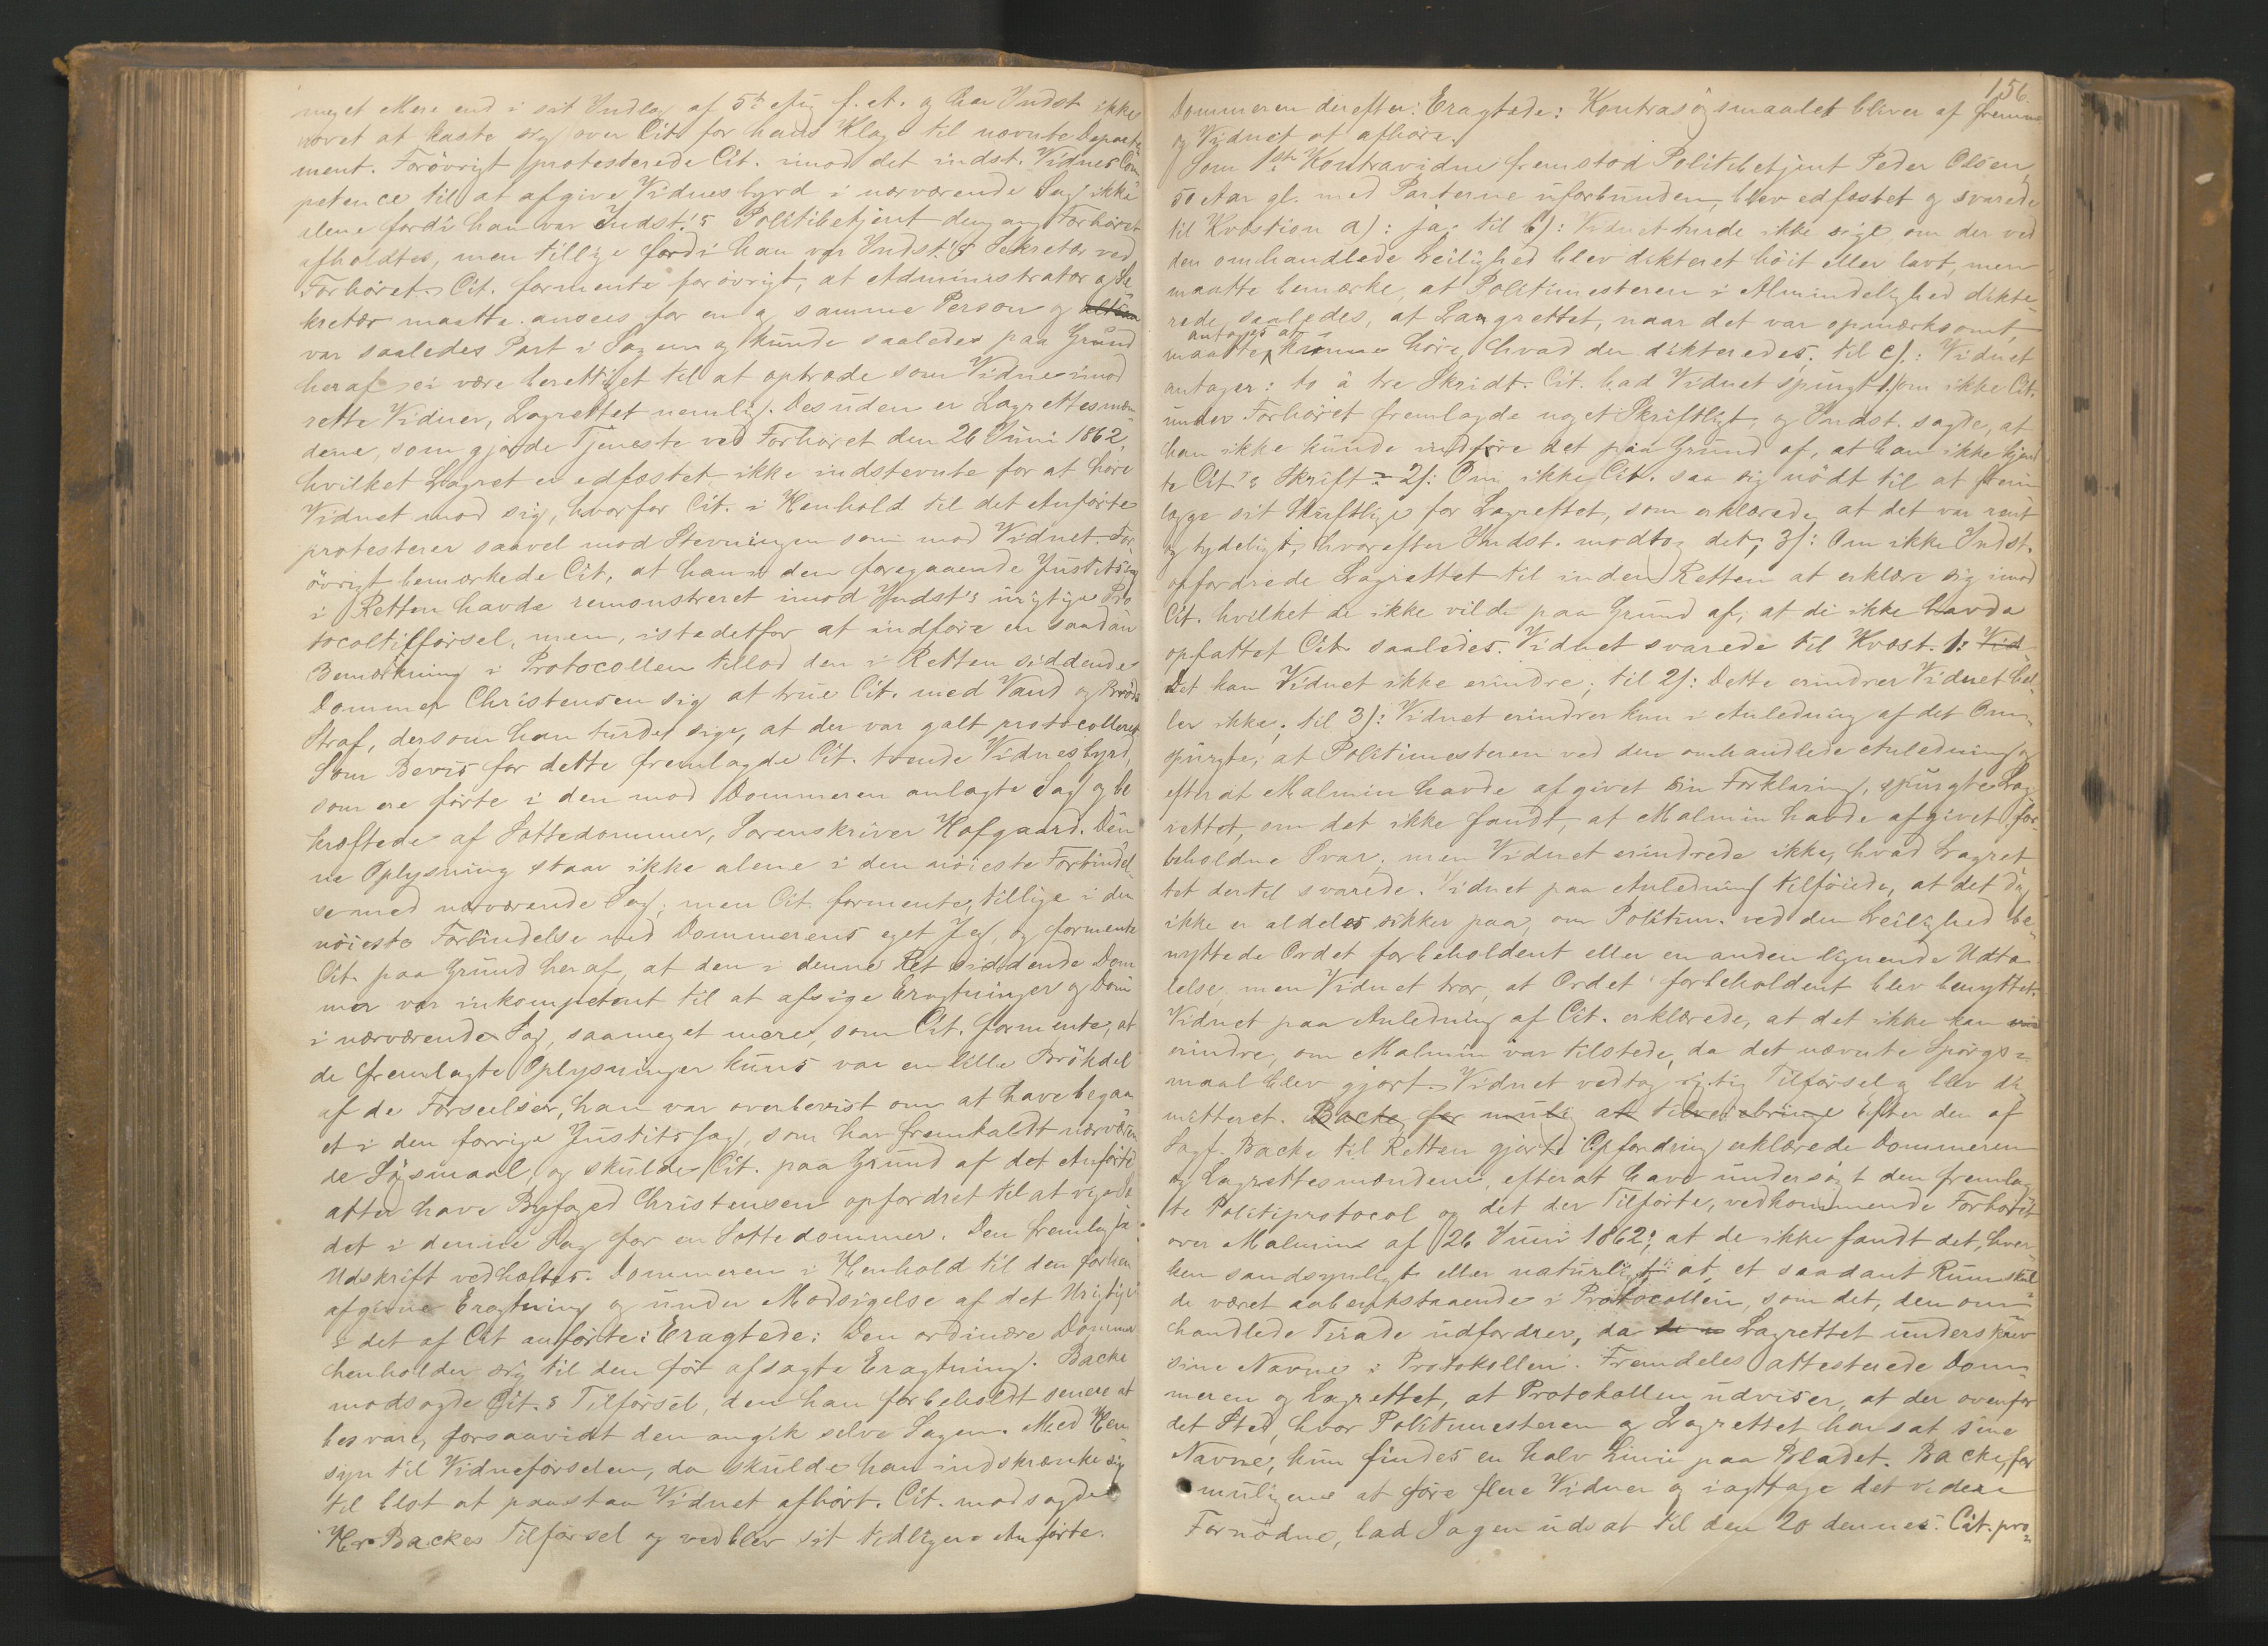 meget Mere end i sit Indlæg af 5te Aug f. A. og har Indst ikke
været at kaste sig over Cit. for hans Klage til nævnte Departe-
ment. Forövrigt protesterede Cit. imod det indst. Vidnes Com-
petence til at afgive Vidnesbyrd i nærværende Sag ikke
alene fordi han var Indst.'s Politibetjent dengang Forhöret
afholdtes, men tillige fordi han var Indst.'s Sekretær ved
Forhöret. Cit. formente forövrigt, at Administrator og Se-
kretær maatte ansees for en og samme Person og
var saaledes Part i Sagen og kunde saaledes paa Grund
heraf ei være berettiget til at optræde som Vidne imod
rette Vidner, Lagrettet nemlig. Desuden er Lagrettesmæn-
dene, som gjorde Tjeneste ved Forhöret den 26 Juni 1862,
hvilket Lagret er edfæstet, ikke indstevnte for at höre
Vidnet mod sig, hvorfor Cit. i Henhold til det Anförte
protesterer saavel mod Stevningen som mod Vidnet. For-
övrigt bemærkede Cit, at han i den foregaaende Justitssag
i Retten havde remonstreret imod Indst's urigtige Pro-
tocoltilförsel, men, istedetfor at indföre en saadan
Bemærkning i Protocollen tillod den i Retten siddende
Dommer Christensen sig at true Cit. med Vand og Bröds
Straf, dersom han turde sige, at der var galt protocolleret
Som Bevis for dette fremlagde Cit. tvende Vidnesbyrd,
som ere förte i den mod Dommeren anlagte Sag og be-
kræftede af Sættedommer, Sorenskriver Hofgaard. Den-
ne Oplysning staar ikke alene i den nöieste Forbindel-
se med nærværende Sag; men Cit. formente, tillige i den
nöieste Forbindelse med Dommerens eget Jeg, og formente
Cit. paa Grund heraf, at den i denne Ret siddende Dom-
mer var inkompetent til at afsige Eragtninger og Dom
i nærværende Sag, saameget mere, som Cit. formente, at
de fremlagte Oplysninger kuns var en lille Brökdel
af de Forseelser, han var overbevist om at have begaa-
et i den forrige Justitssag, som har fremkaldt nærværen-
de Sögsmaal, og skulde Cit. paa Grund af det Anförte
atter have Byfoged Christensen opfordret til at vige Sæ-
det i denne Sag for en Sættedommer. Den fremlagte
Udskrift vedhæftes. Dommeren i Henhold til den forhen
afgivne Eragtning og under Modsigelse af det Urigtige
i det af Cit anförte: Eragtede: Den ordinære Dommer
henholder sig til den för afsagte Eragtning. Backe
modsagde Cit.s Tilförsel, den han forbeholdt senere at
besvare, forsaavidt den angik selve Sagen. Med Hen-
syn til Vidneförselen, da skulde han indskrænke sig
til blot at paastaa Vidnet afhört. Cit. modsagde
Hr. Backes Tilförsel og vedblev sit tidligere Anförte.
156.
Dommeren derefter: Eragtede: Kontrasögsmaalet bliver at fremme
og Vidnet at afhöre.
Som 1ste Kontravidne fremstod Politibetjent Peder Olsen,
50 Aar gl. med Parterne uforbunden, blev edfæstet og svarede
til Kvæstion a): ja. til b): Vidnet turde ikke sige, om der ved
den omhandlede Leilighed blev dikteret höit eller lavt, men
maatte bemærke, at Politimesteren i Almindelighed dikte-
rede saaledes, at Laugrettet, naar det var opmærksomt,
antages at
maatte kunne höre, hvad der dikteredes. til c): Vidnet
antager: to à tre Skridt. Cit. bad Vidnet spurgt 1) om ikke Cit.
under Forhöret fremlagde noget Skriftligt, og Indst. sagde, at
han ikke kunde indföre det paa Grund af, at han ikke kjend-
te Cit.'s Skrift? 2): Om ikke Cit. saa sig nödt til at frem-
lægge sit Skriftlige for Lagrettet, som erklærede, at det var rent
og tydeligt, hvorefter Indst. modtog det; 3): Om ikke Indst.
opfordrede Lagrettet til inden Retten at erklære sig imod
Cit. hvilket de ikke vilde paa Grund af, at de ikke havde
opfattet Cit. saaledes. Vidnet svarede til Kvæst. 1: Vid-
Det kan Vidnet ikke erindre; til 2): Dette erindrer Vidnet hel-
ler ikke; til 3): Vidnet erindrer kun i Anledning af det Om-
spurgte, at Politimesteren ved den omhandlede Anledning og
efterat Malmin havde afgivet sin Forklaring, spurgte Lag-
rettet, om det ikke fandt, at Malmin havde afgivet for-
beholdne Svar, men Vidnet erindrede ikke, hvad Lagret-
tet dertil svarede. Vidnet paa Anledning tilföiede, at det dog
ikke er aldeles sikker paa, om Politim. ved den Leilighed be-
nyttede Ordet forbeholdent eller en anden lignende Udta-
lelse, men Vidnet tror, at Ordet forbeholdent blev benyttet.
Vidnet paa Anledning af Cit. erklærede, at det ikke kan
erindre, om Malmin var tilstede, da det nævnte Spörgs-
maal blev gjort. Vidnet vedtog rigtig Tilförsel og blev di-
mitteret. Backe for mulig at tilveiebringe Efter den af
Sagf. Backe til Retten gjorte Opfordring erklærede Dommeren
og Lagrettesmændene, efterat have undersögt den fremlag-
te Politiprotocol og det der Tilförte, vedkommende Forhöret
over Malmin af 26 Juni 1862, at de ikke fandt det, hver-
ken sandsynligt eller naturligt at et saadant Rum skul-
de været aabentstaaende i Protocollen, som det, den om-
handlede Tirade udfordrer, da Lagrettet underskrev
sine Navne i Protokollen. Fremdeles attesterede Dom-
meren og Lagrettet, at Protokollen udviser, at der ovenfor
det Sted, hvor Politimesteren og Lagrettet har sat sine
Navne, kun findes en halv Linie paa Bladet. Backe, for
muligens at före flere Vidner og iagttage det videre
Fornödne, bad Sagen udsat til den 20 dennes. Cit. pro-